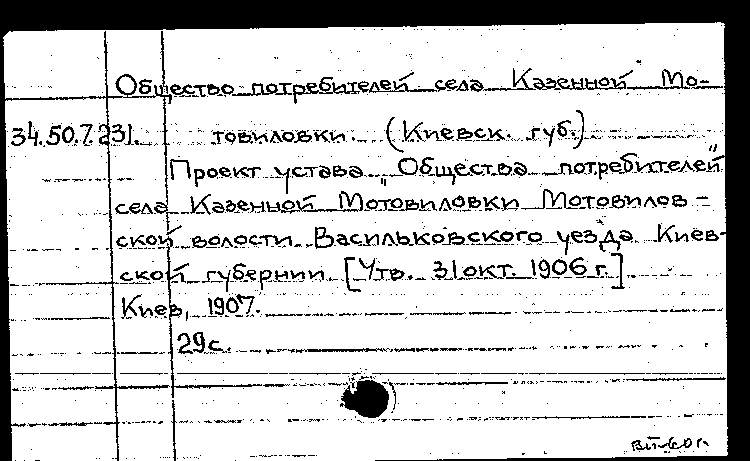 Общество потребителей села Казенной Мо-
34.50.7.231. товиловки. (Киевск. губ.)
Проект устава "Общества потребителей"
села Казенной Мотовиловки Мотовилов-
ской волости Васильковского уезда Киев-
ской губернии [Утв. 31 окт. 1906 г.].
Киев, 1907.
29 с.